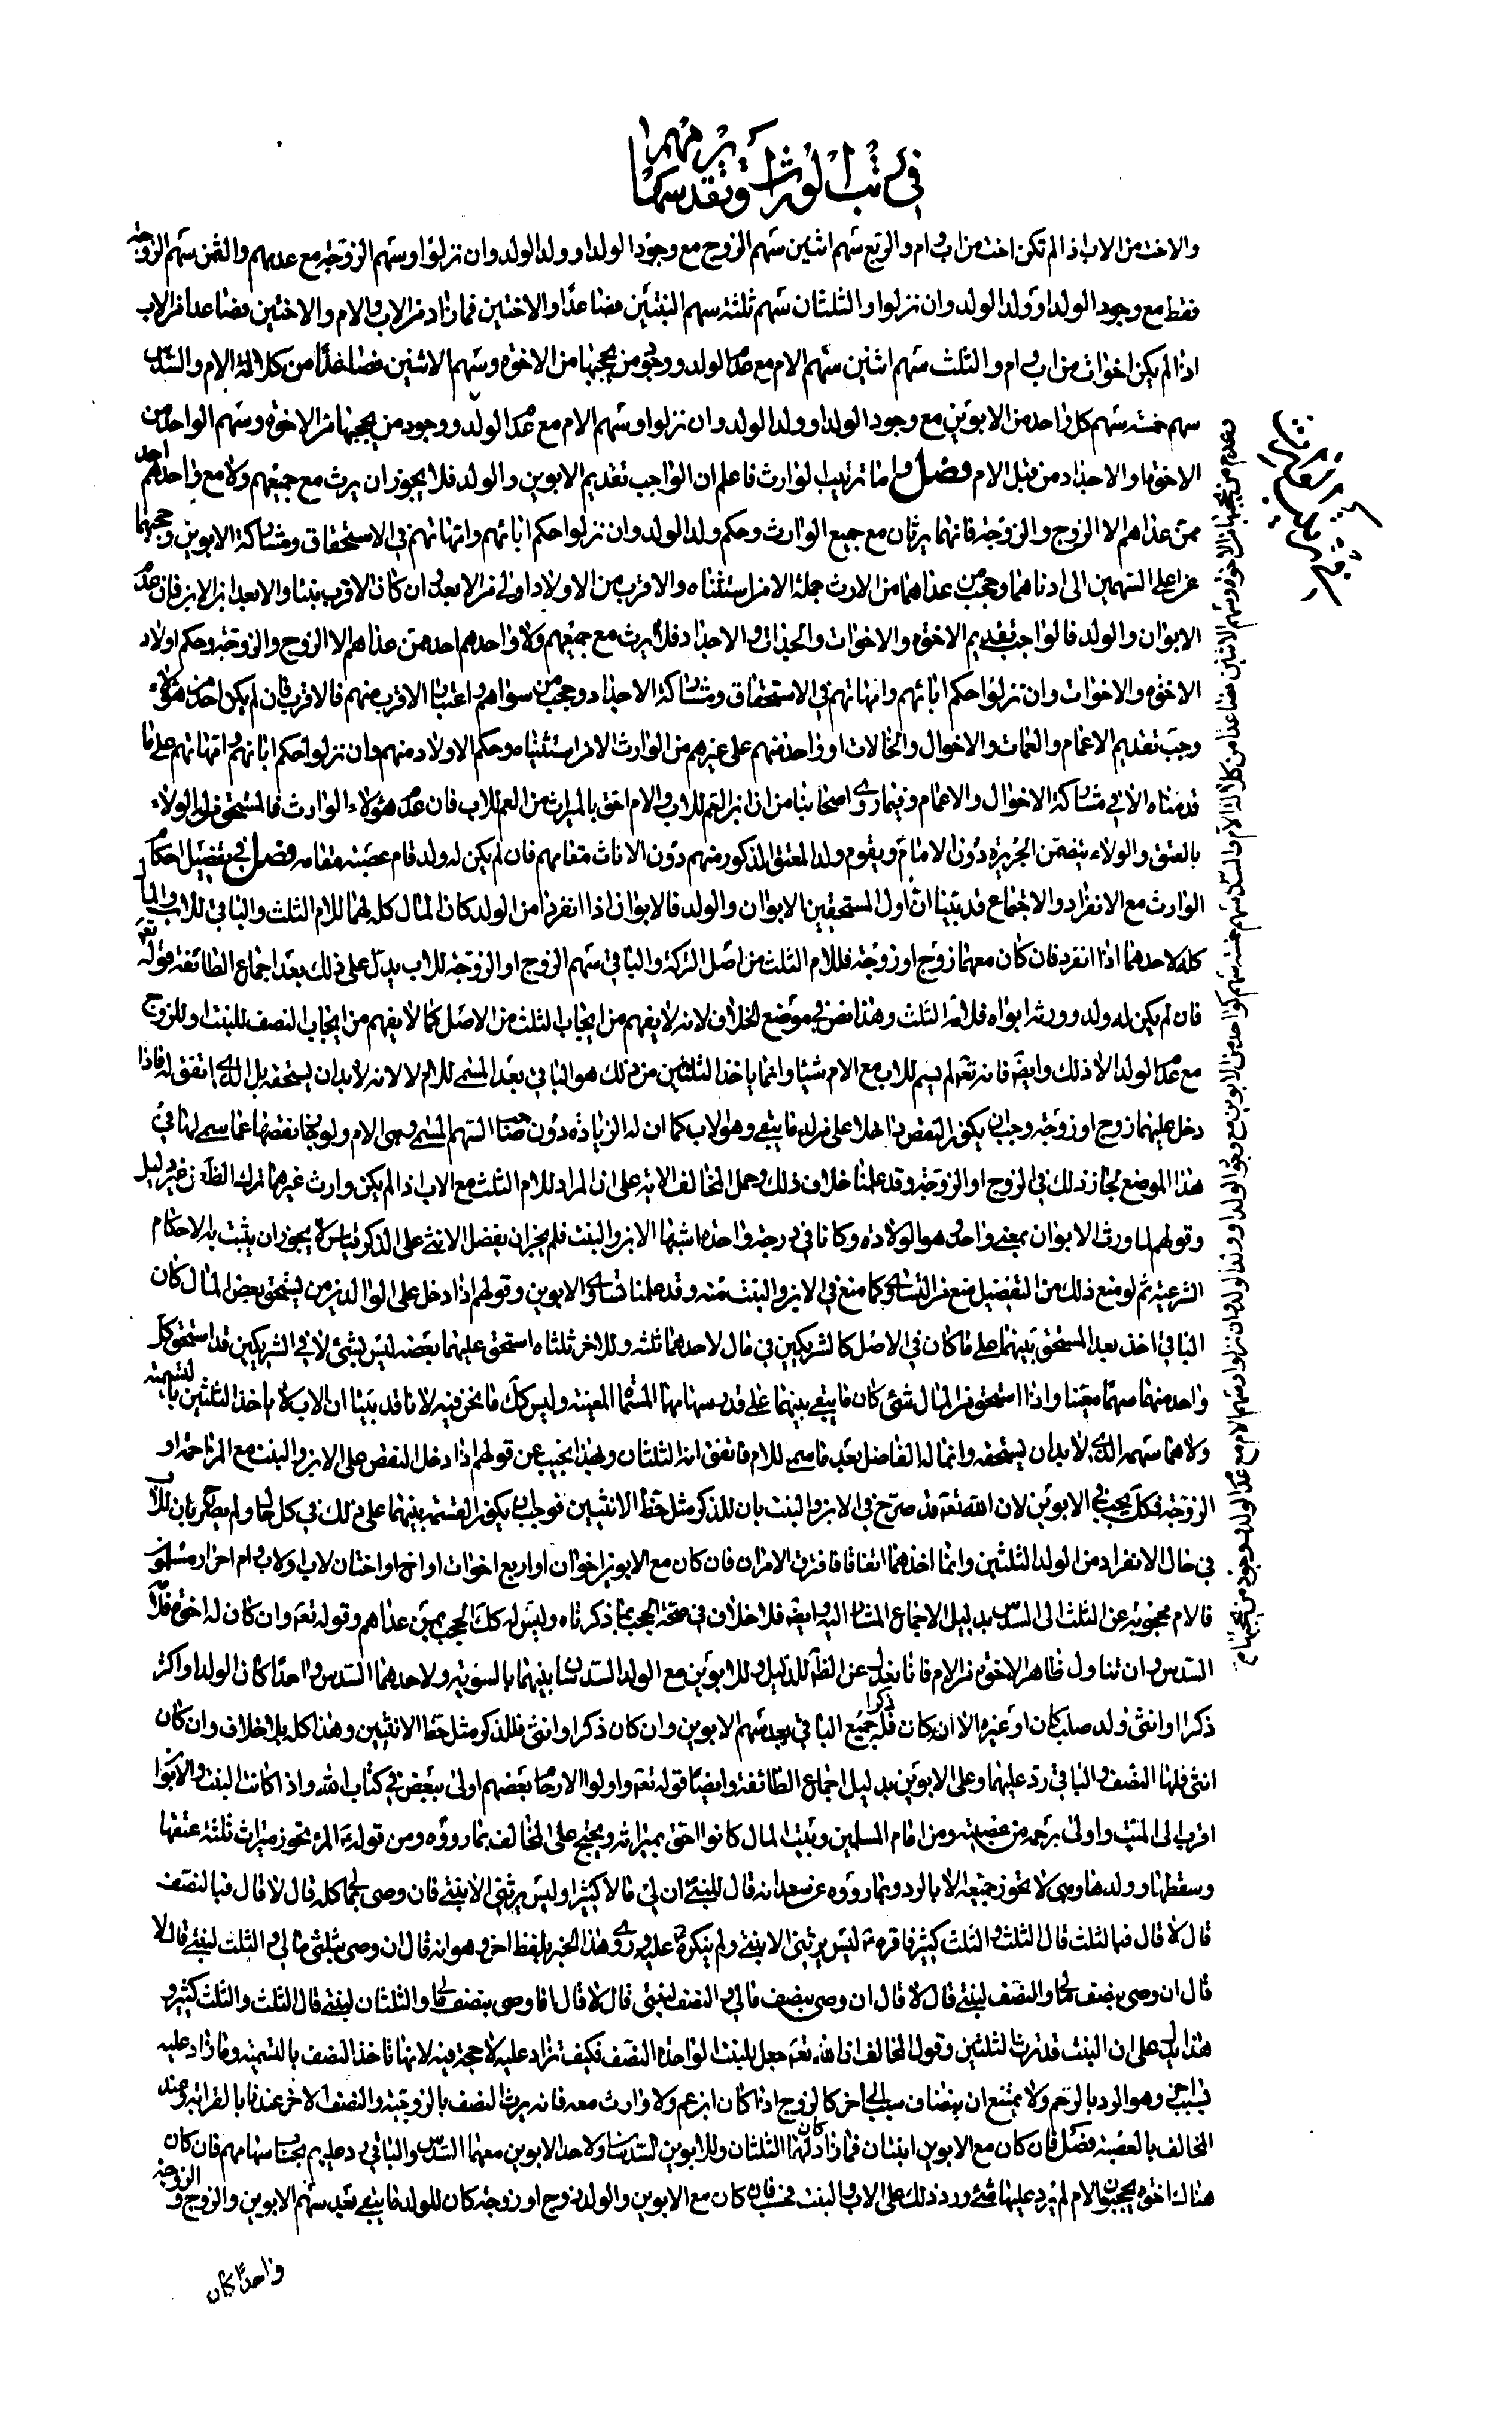 في ترتيب الوراث وتقدير سهامهم
والاخت من الاب اذا لم تكن اخت من اب وام والربع سهم اثنين سهم الزوج مع وجود الولد او ولد الولد وان نزلوا وسهم الزوجة مع عدمهم والثمن سهم الزوجة
فقط مع وجود الولد او ولد الولد وان نزلوا والثلثان سهم ثلثة سهم البنتين فصاعدا والاختين فما زاد من الاب والام والاختين فصاعدا من الاب
اذا لم يكن اخوات من اب وام والثلث سهم اثنين سهم الام مع عدم الولد ووجود من يحجبها من الاخوة وسهم الاثنين فصاعدا من كلالة الام والسدس
سهم خمسة سهم كل واحد من الابوين مع وجود الولد او ولد الولد وان نزلوا وسهم الام مع عدم الولد ووجود من يحجبها من الاخوة وسهم الواحد من
الاخوة والاجداد من قبل الام فصل واما ترتيب الوارث فاعلم ان الواجب تقديم الابوين والولد فلا يجوز ان يرث مع جميعهم ولا مع واحدهم احد
ممن عداهم الا الزوج والزوجة فانهما يرثان مع جميع الوارث وحكم ولد الولد وان نزلوا حكم ابائهم وامهاتهم في الاستحقاق ومشاركة الابوين وحجبهما
عن اعلى السهمين الى ادناهما وحجب من عداهما من الارث جملة الا من استثنناه والاقرب من الاولاد اولى من الابعد وان كان الاقرب بنتا والابعد ابن الابن فان عدم
الابوان والولد فالواجب تقديم الاخوة والاخوات والجدات والاجداد فلا يرث مع جميعهم ولا واحدهم احد ممن عداهم الا الزوج والزوجة وحكم اولاد
الاخوة والاخوات وان نزلوا حكم ابائهم وامهاتهم في الاستحقاق ومشاركة الاجداد وحجب من سواهم واعتبار الاقرب منهم فالاقرب فان لم يكن احد من هؤلاء
وجب تقديم الاعمام والعمات والاخوال والخالات او واحد منهم على غيرهم من الوارث الا من استثنيناه وحكم الاولاد منهم وان نزلوا حكم ابائهم وامهاتهم على ما
قدمناه الا في مشاركة الاخوال والاعمام وفيما روى اصحابنا من ان ابن العم للاب والام احق بالميراث من العم للاب فان عدم هؤلاء الوارث فالمستحق من له الولاء
بالعتق والولاء بتضمن الجريرة دون الامام ويقوم ولد المعتق الذكور منهم دون الاناث مقامهم فان لم يكن له ولد قام عصبته مقامه فصل في تفصيل احكام
الوارث مع الانفراد والاجتماع قد بينا ان اول المستحقين الابوان والولد فالابوان اذا انفردا من الولد كان المال كله لهما للام الثلث والباقي للاب والمال
كله لاحدهما اذا انفرد فان كان معهما زوج او زوجة فللام الثلث من اصل التركة والباقي بعد سهم الزوج او الزوجة للاب يدل على ذلك بعد اجماع الطائفة قوله تع
فان لم يكن له ولد وورثه ابواه فلامه الثلث وهذا نص في موضع الخلاف لانه لا يفهم من ايجاب الثلث من الاصل كما لا يفهم من ايجاب النصف للبنت او للزوج
مع عدم الولد الا ذلك وايضا فانه تع لم يسم للاب مع الام شيئا وانما ياخذ الثلثين من ذلك هو الباقي بعد المسمى للام لا لانه لا بد ان يستحقه بل الذي اتفق له فاذا
دخل عليهما زوج او زوجة وجب ان يكون النقص داخلا على من له ما يبقى وهو الاب كما ان له الزيادة دون صاحب السهم المسمى وهى الام ولو جاز نقصها عما سمى لها في
هذا الموضع لجاز ذلك في الزوج او الزوجة وقد علمنا خلاف ذلك وحمل المخالف الاية على ان المراد للام الثلث مع الاب اذا لم يكن وارث غيرهما ترك الظاهر من غير دليل
وقولهم لما ورث الابوان بمعنى واحد وهو الولادة وكانا في درجة واحدة اشبها الابن والبنت فلم يجز ان يفضل الانثى على الذكر قياس لا يجوز ان يثبت به الاحكام
الشرعية ثم لو منع ذلك من التفضيل منع من التساوي كما منع في الابن والبنت منه وقد علمنا تساوي الابوين وقولهم اذا دخل على الوالدين من يستحق بعض المال كان
الباقي اخذ بعد المستحق بينهما على ما كان في الاصل كالشريكين في مال لاحدهما ثلثه وللاخر ثلثاه استحق عليهما بعضه ليس بشئ لان في الشريكين قد استحق كل
واحد منهما سهما معينا واذا استحق من المال شئ كان ما يبقى بينهما على قدر سهامهما المسماة المعينة وليس كك ما نحن فيه لانا قد بينا ان الاب لا ياخذ الثلثين بالتسمية
ولا هما سهمه الذي لا بد ان يستحقه وانما له الفاضل بعد ما سمى للام فاتفق انه الثلثان وبهذا نجيب عن قولهم اذا دخل النقص على الابن والبنت مع المزاحمة او
الزوجة فكك يجب في الابوين لان الله تع قد صرح في الابن والبنت بان للذكر مثل حظ الانثيين فوجب ان يكون القسمة بينهما على ذلك في كل حال ولم يصرح بان للاب
في حال الانفراد من الولد الثلثين وانما اخذهما اتفاقا فافترق الامران فان كان مع الابوين اخوان او اربع اخوات او اخ واختان لاب او لاب وام احرار مسلمون
فالام محجوبة عن الثلث الى السدس بدليل الاجماع المشار اليه وايضا فلا خلاف في صحة الحجب بما ذكرناه وليس كك الحجب بمن عداهم وقوله تع وان كان له اخوة فلامه
السدس وان تناول ظاهر الاخوة من الام فانا نعدل عن الظاهر للدليل وللابوين مع الولد السدسان بينهما بالسوية ولاحدهما السدس واحدا كان الولد او اكثر
ذكرا او انثى ولد صلب كان او غيره الا انه ان كان ذكرا فله جميع الباقي بعد سهم الابوين وان كان ذكرا وانثى فللذكر مثل حظ الانثيين وهذا كله بلا خلاف وان كان
انثى فلها النصف والباقي رد عليهما وعلى الابوين بدليل اجماع الطائفة وايضا قوله تع واولوا الارحام بعضهم اولى ببعض في كتاب الله واذا كانت البنت والابوان
اقرب الى الميت واولى برحمه من عصبته ومن امام المسلمين وبيت المال كانوا احق بميراثه ويحتج على المخالف بما رووه ومن قوله ع المراة تحوز ميراث ثلثة عتيقها
ولقيطها وولدها وهى لا تحوز جميعه الا بالرد وبما رووه عن سعد انه قال للنبي ان لي مالا كثيرا وليس يرثني الا بنتي فاوصى بمالي كله قال لا قال فبالنصف
قال لا قال فبالثلث قال الثلث والثلث كثير فاقره ع ليس يرثني الا بنتي ولم ينكره عليه وروى هذا الخبر بلفظ اخر وهو انه قال اوصى بثلثي مالي والثلث لبنتي قال لا
قال اوصى بنصف مالي والنصف لبنتي قال لا قال اوصى بثلث مالي والثلثان لبنتي قال الثلث والثلث كثير و
هذا يدل على ان البنت قد ترث الثلثين وقول المخالف ان الله تع جعل للبنت الواحدة النصف فكيف تزاد عليه لا حجة فيه لانها تاخذ النصف بالتسمية وما زاد عليه
بسبب اخر وهو الرد بالرحم ولا يمتنع ان ينضاف سبب الى اخر كالزوج اذا كان ابن عم ولا وارث معه فانه يرث النصف بالزوجية والنصف الاخر عندنا بالقرابة وعند
المخالف بالعصبة فصل فان كان مع الابوين ابنتان فما زاد كان لهما الثلثان وللابوين السدسان ولاحد الابوين معهما السدس والباقي رد عليهم بحساب سهامهم فان كان
هناك اخوة يحجبون الام لم يرد عليها شئ ورد ذلك على الاب والبنت فحسب فان كان مع الابوين والولد زوج او زوجة كان للولد ما يبقى بعد سهم الابوين والزوج او الزوجة
واحدا كان
وعدم من يحجبها من الاخوة وسهم الاثنين فصاعدا من كلالة الام والسدس سهم خمسة سهم كل واحد من الابوين مع وجود الولد او ولد الولد وان نزلوا وسهم الام مع عدم الولد ووجود من يحجبها